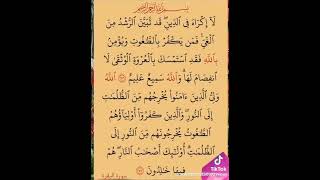 بسم الله الرحمن الرحيم
لَآ إِكْرَاهَ فِى ٱلدِّينِۖ قَد تَّبَيَّنَ ٱلرُّشْدُ مِنَ
ٱلْغَىِّۚ فَمَن يَكْفُرْ بِٱلطَّٰغُوتِ وَيُؤْمِنۢ
بِٱللَّهِ فَقَدِ ٱسْتَمْسَكَ بِٱلْعُرْوَةِ ٱلْوُثْقَىٰ لَا
ٱنفِصَامَ لَهَاۗ وَٱللَّهُ سَمِيعٌ عَلِيمٌ ۝ ٱللَّهُ
وَلِىُّ ٱلَّذِينَ ءَامَنُوا۟ يُخْرِجُهُم مِّنَ ٱلظُّلُمَٰتِ
إِلَى ٱلنُّورِۖ وَٱلَّذِينَ كَفَرُوٓا۟ أَوْلِيَآؤُهُمُ
ٱلطَّٰغُوتُ يُخْرِجُونَهُم مِّنَ ٱلنُّورِ إِلَى
ٱلظُّلُمَٰتِۗ أُو۟لَٰٓئِكَ أَصْحَٰبُ ٱلنَّارِۖ هُمْ
فِيهَا خَٰلِدُونَ ۝
سورة البقرة
TikTok